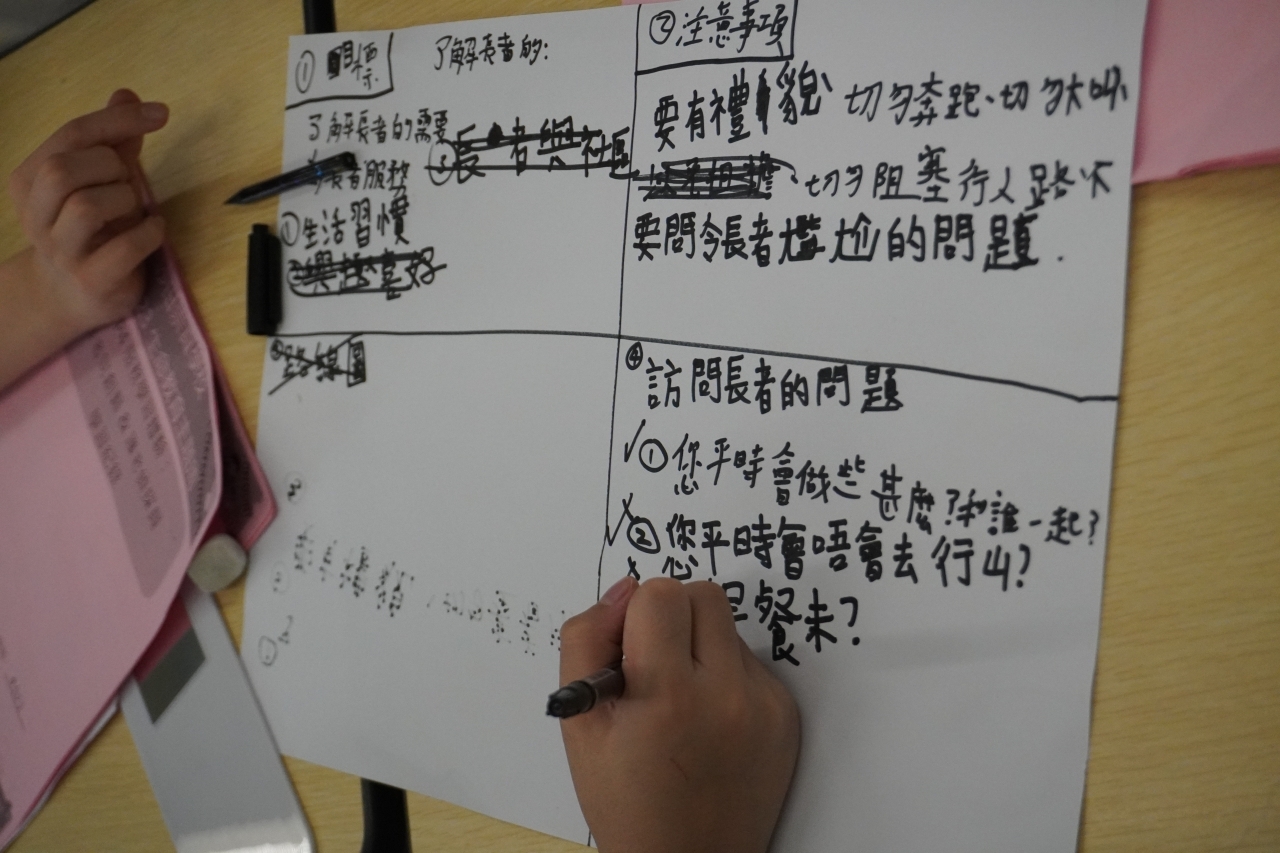 ① 目標
了解長者的:
了解長者的需要
為長者服務
長者與社區
①生活習慣
喜好
②注意事項
要有禮貌 切勿奔跑、切勿大叫
、切勿阻塞行人路、不
要問令長者尷尬的問題.
路線圖
④訪問長者的問題
①您平時會做些甚麼?和誰一起?
②您平時會唔會去行山?
早餐未?